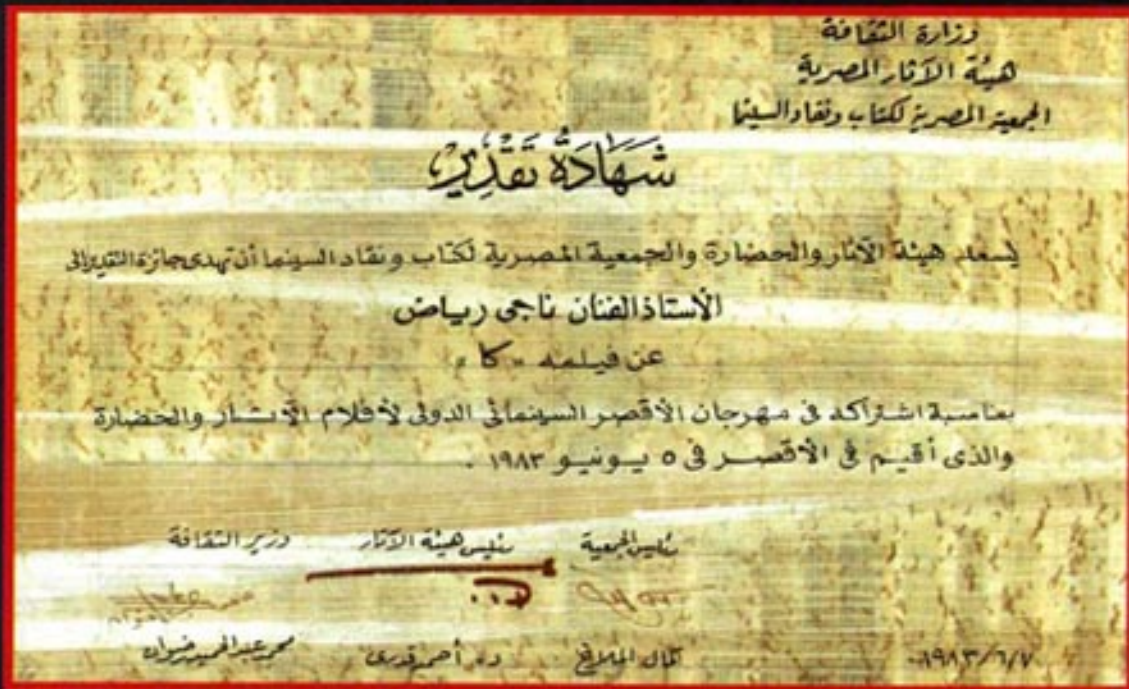 وزارة الثقافة
هيئة الآثار المصرية
الجمعية المصرية لكتاب ونقاد السينما
شَهَادَةُ تَقْدِيرْ
يسعد هيئة الآثار والحضارة والجمعية المصرية لكتاب ونقاد السينما أن تهدى جائزة التقدير إلى
الأستاذ الفنان ناجى رياض
عن فيلمه "كا"
بمناسبة اشتراكه فى مهرجان الأقصر السينمائى الدولى لأفلام الآثار والحضارة
والذى أقيم فى الأقصر فى ٥ يونيو ١٩٨٣ .
رئيس الجمعية رئيس هيئة الآثار وزير الثقافة
كمال الملاخ د. أحمد قدرى محمد عبد الحميد رضوان
١٩٨٣/٦/٧